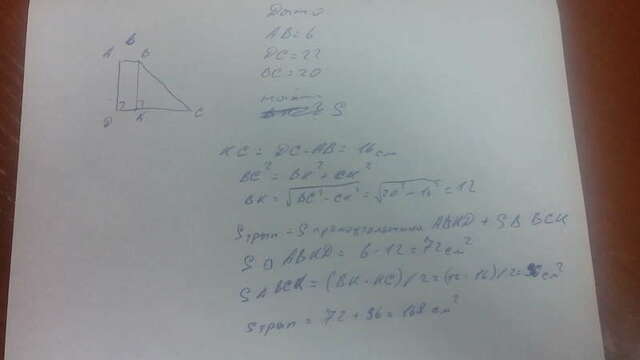 Дано
AB=6
DC=22
BC=20
найти
S
A B B
D K C
KC = DC-AB = 16 см
BC² = BK² + CK²
BK = √BC²-CK² = √20²-16² = 12
Sтрап = S прямоугольника ABKD + S∆ BCK
S ABKD = 6·12=72 см²
S∆BCK = (BK·KC)/2=(12·16)/2=96 см²
Sтрап = 72+96=168 см²